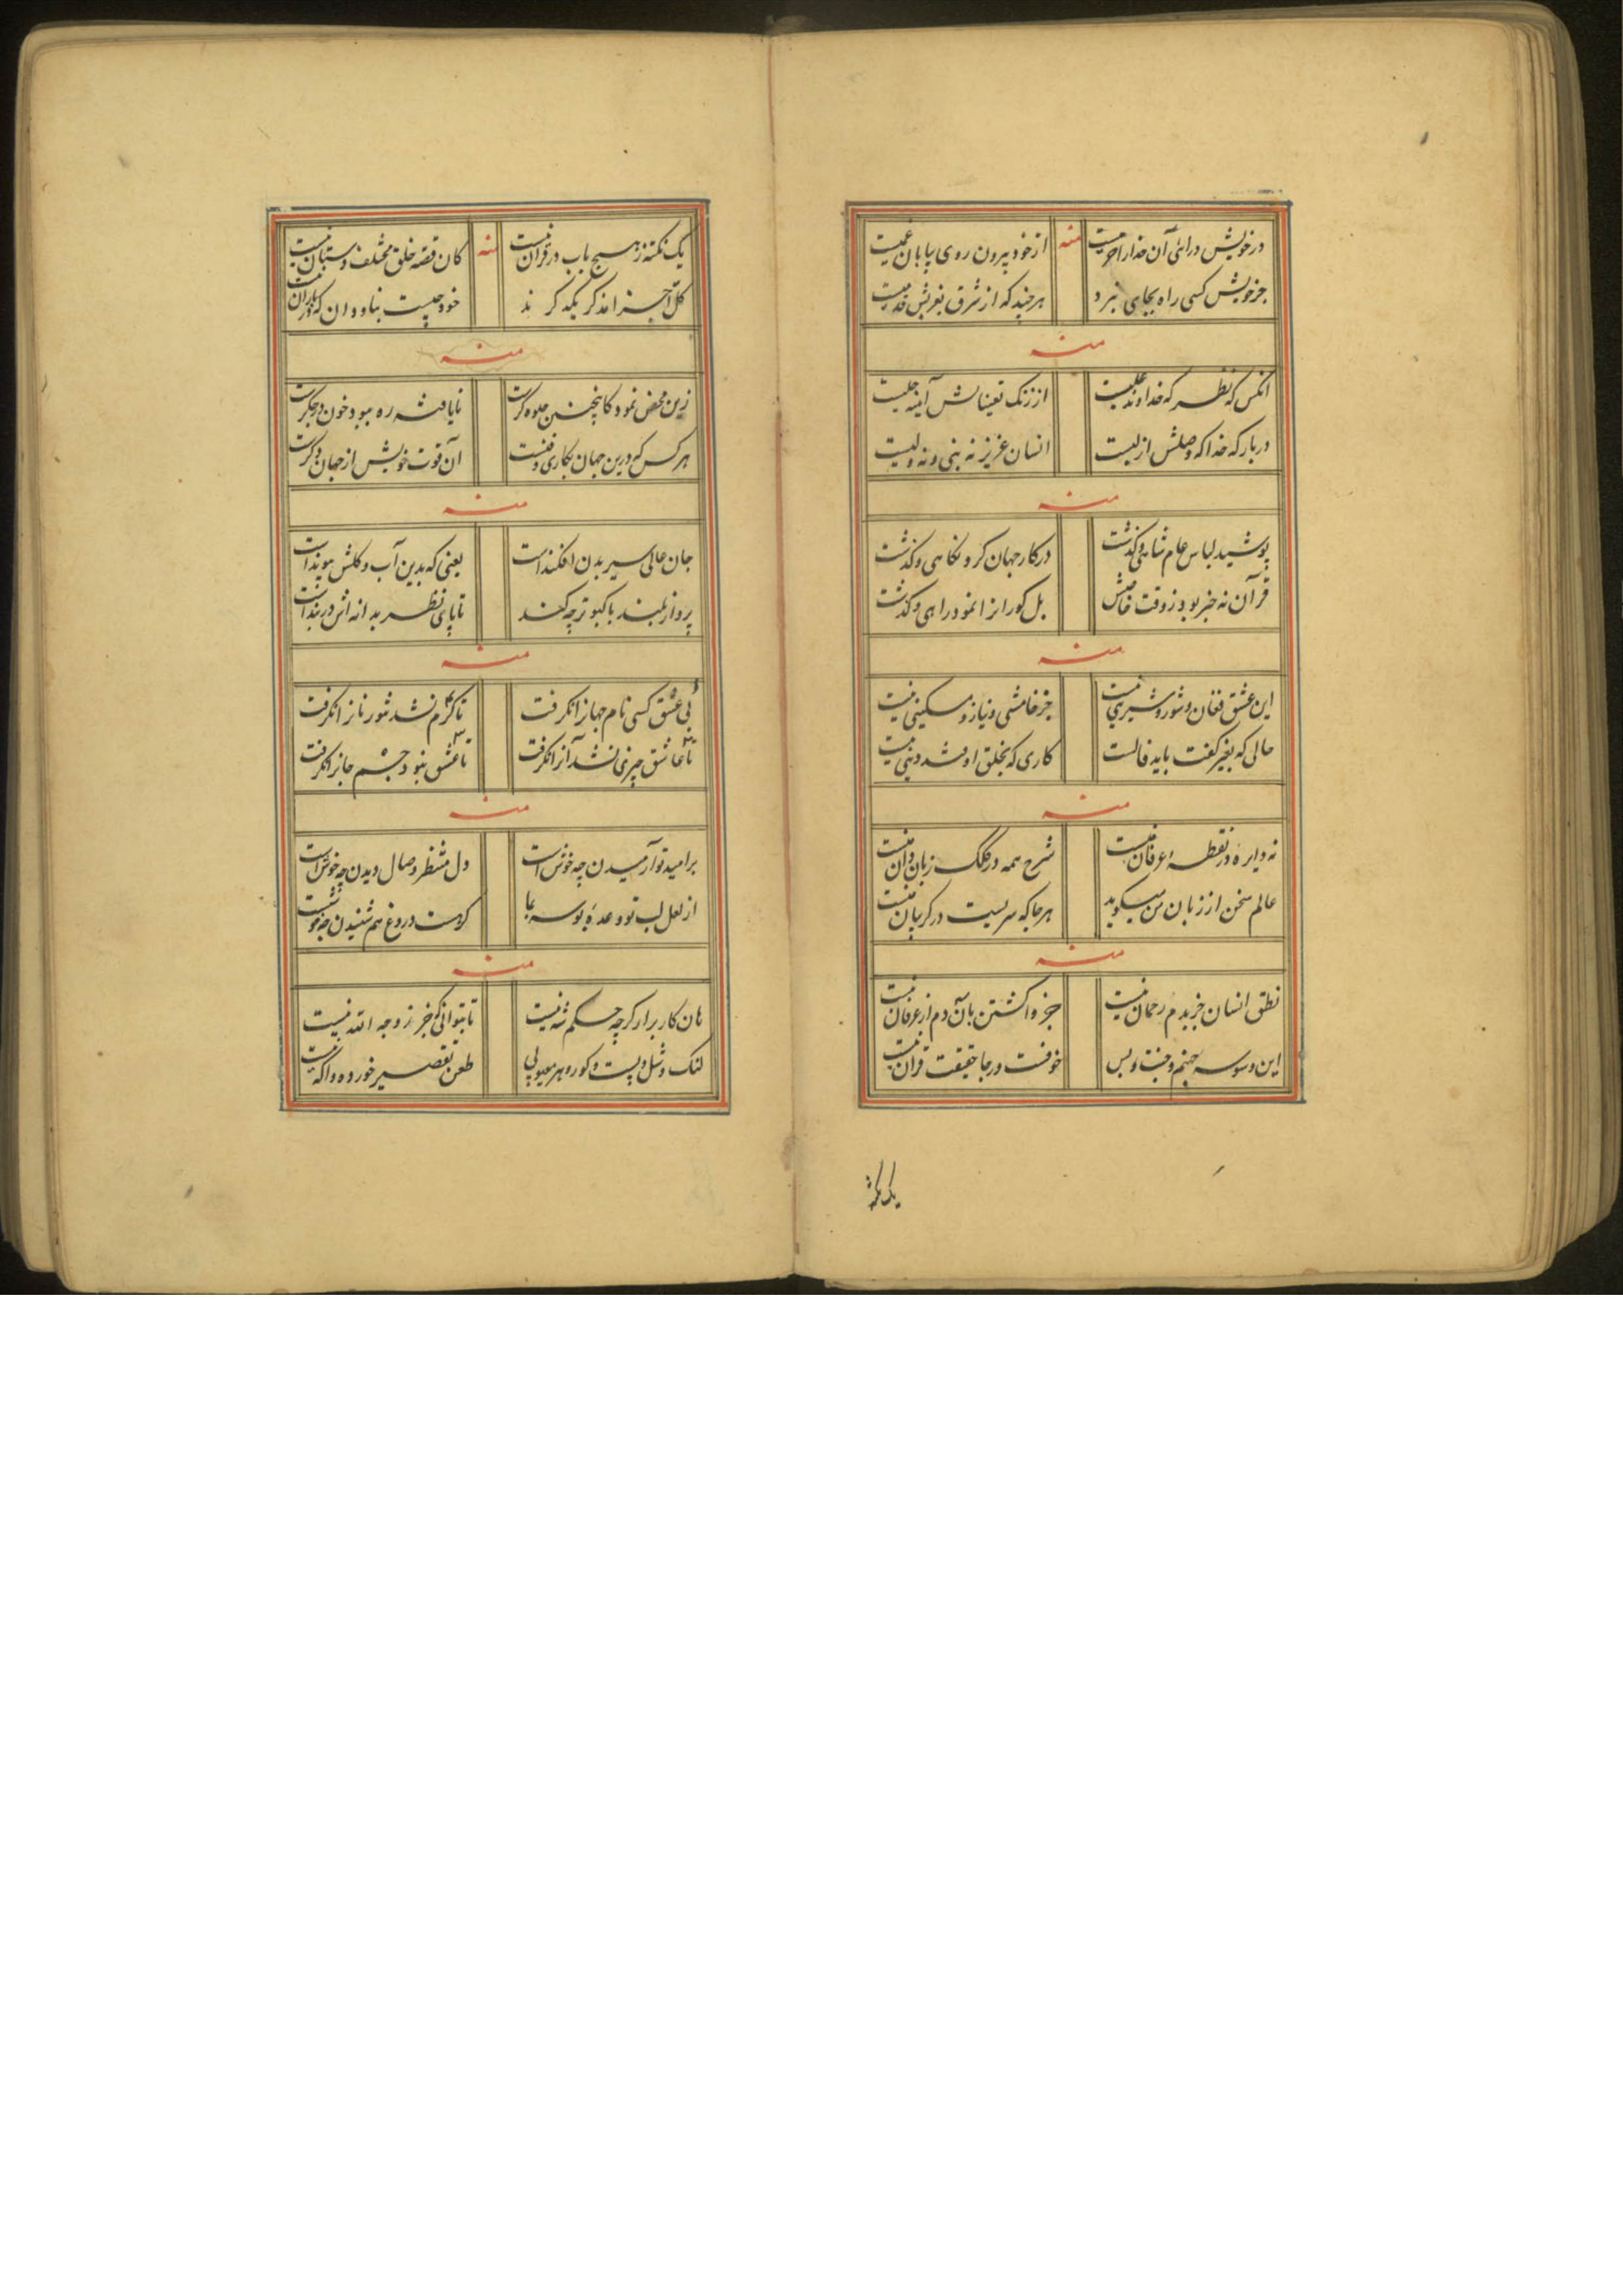 در خویش درآی آن خدا را حرمیست
منه
از خود بیرون روی بیابان عمیست
جز خویش کسی راه بجای نبرد
هر چند که از شرق بغربش قدمیست
منه
آنکس که نظر که خداوند علیست
از زنگ تعیناتش آیینه جلیست
دربار که خدا که وصلش ازلیست
انسان عزیز نه نبی و نه ولیست
منه
پوشید لباس عام شاهی و گذشت
در کار جهان کرد نگاهی و گذشت
قرآن نه خبر بود ز وقت خاصش
بل کورانرا نمود راهی و گذشت
منه
این عشق فغان و شور و شیرینی نیست
جز خامشی و نیاز و مسکینی نیست
حالی که بغیر گفت باید قالست
کاری که بخلق اوفتد دینی نیست
منه
نه دایره در نقطهٔ عرفان نیست
شرح همه در کلک زبان دان نیست
عالم سخن از زبان من میگوید
هر جا که سریست در گریبان نیست
منه
نطق انسان جز بدم رحمان نیست
جز واگشتن بآن دم از عرفان نیست
این وسوسه جهنم و جنت و بس
خوفست و رجا حقیقت قرآن نیست
یک نکته
یک نکته ز هیچ باب در قرآن نیست
منه
کان قصه خلق مختلف دستان نیست
کل آخر یکدگر ند
خود چیست بنا و دان که در باران نیست
منه
زین محض نمود کاینچنین جلوه گرست
نایافته ره ببود خون در جگرست
هر کس که درین جهان بکاری رفتست
آن قوت خویش از جهان دگرست
منه
جان عالی سیر بدن افکندست
یعنی که بدین آب و گلش پیوندست
پرواز بلند با کبوتر چه کند
تا پای نظر بدانه اش در بندست
منه
بی عشق کسی نام جهانرا نگرفت
تا گرم نشد تنور نانرا نگرفت
تا عاشق چیزی نشد آنرا نگرفت
تا عشق نبود جسم جانرا نگرفت
منه
بر امید تو آرمیدن چه خوش است
دل منتظر وصال دیدن چه خوش است
از لعل لب تو وعدهٔ بوسه بما
گر هست دروغ هم شنیدن چه خوش است
منه
هان کار برار گرچه حکم شه نیست
تا بتوانی که جز ز وجه الله نیست
لنگ و شل و پست و کور و هر معیوبی
طعن تقصیر خورده و آگه نیست